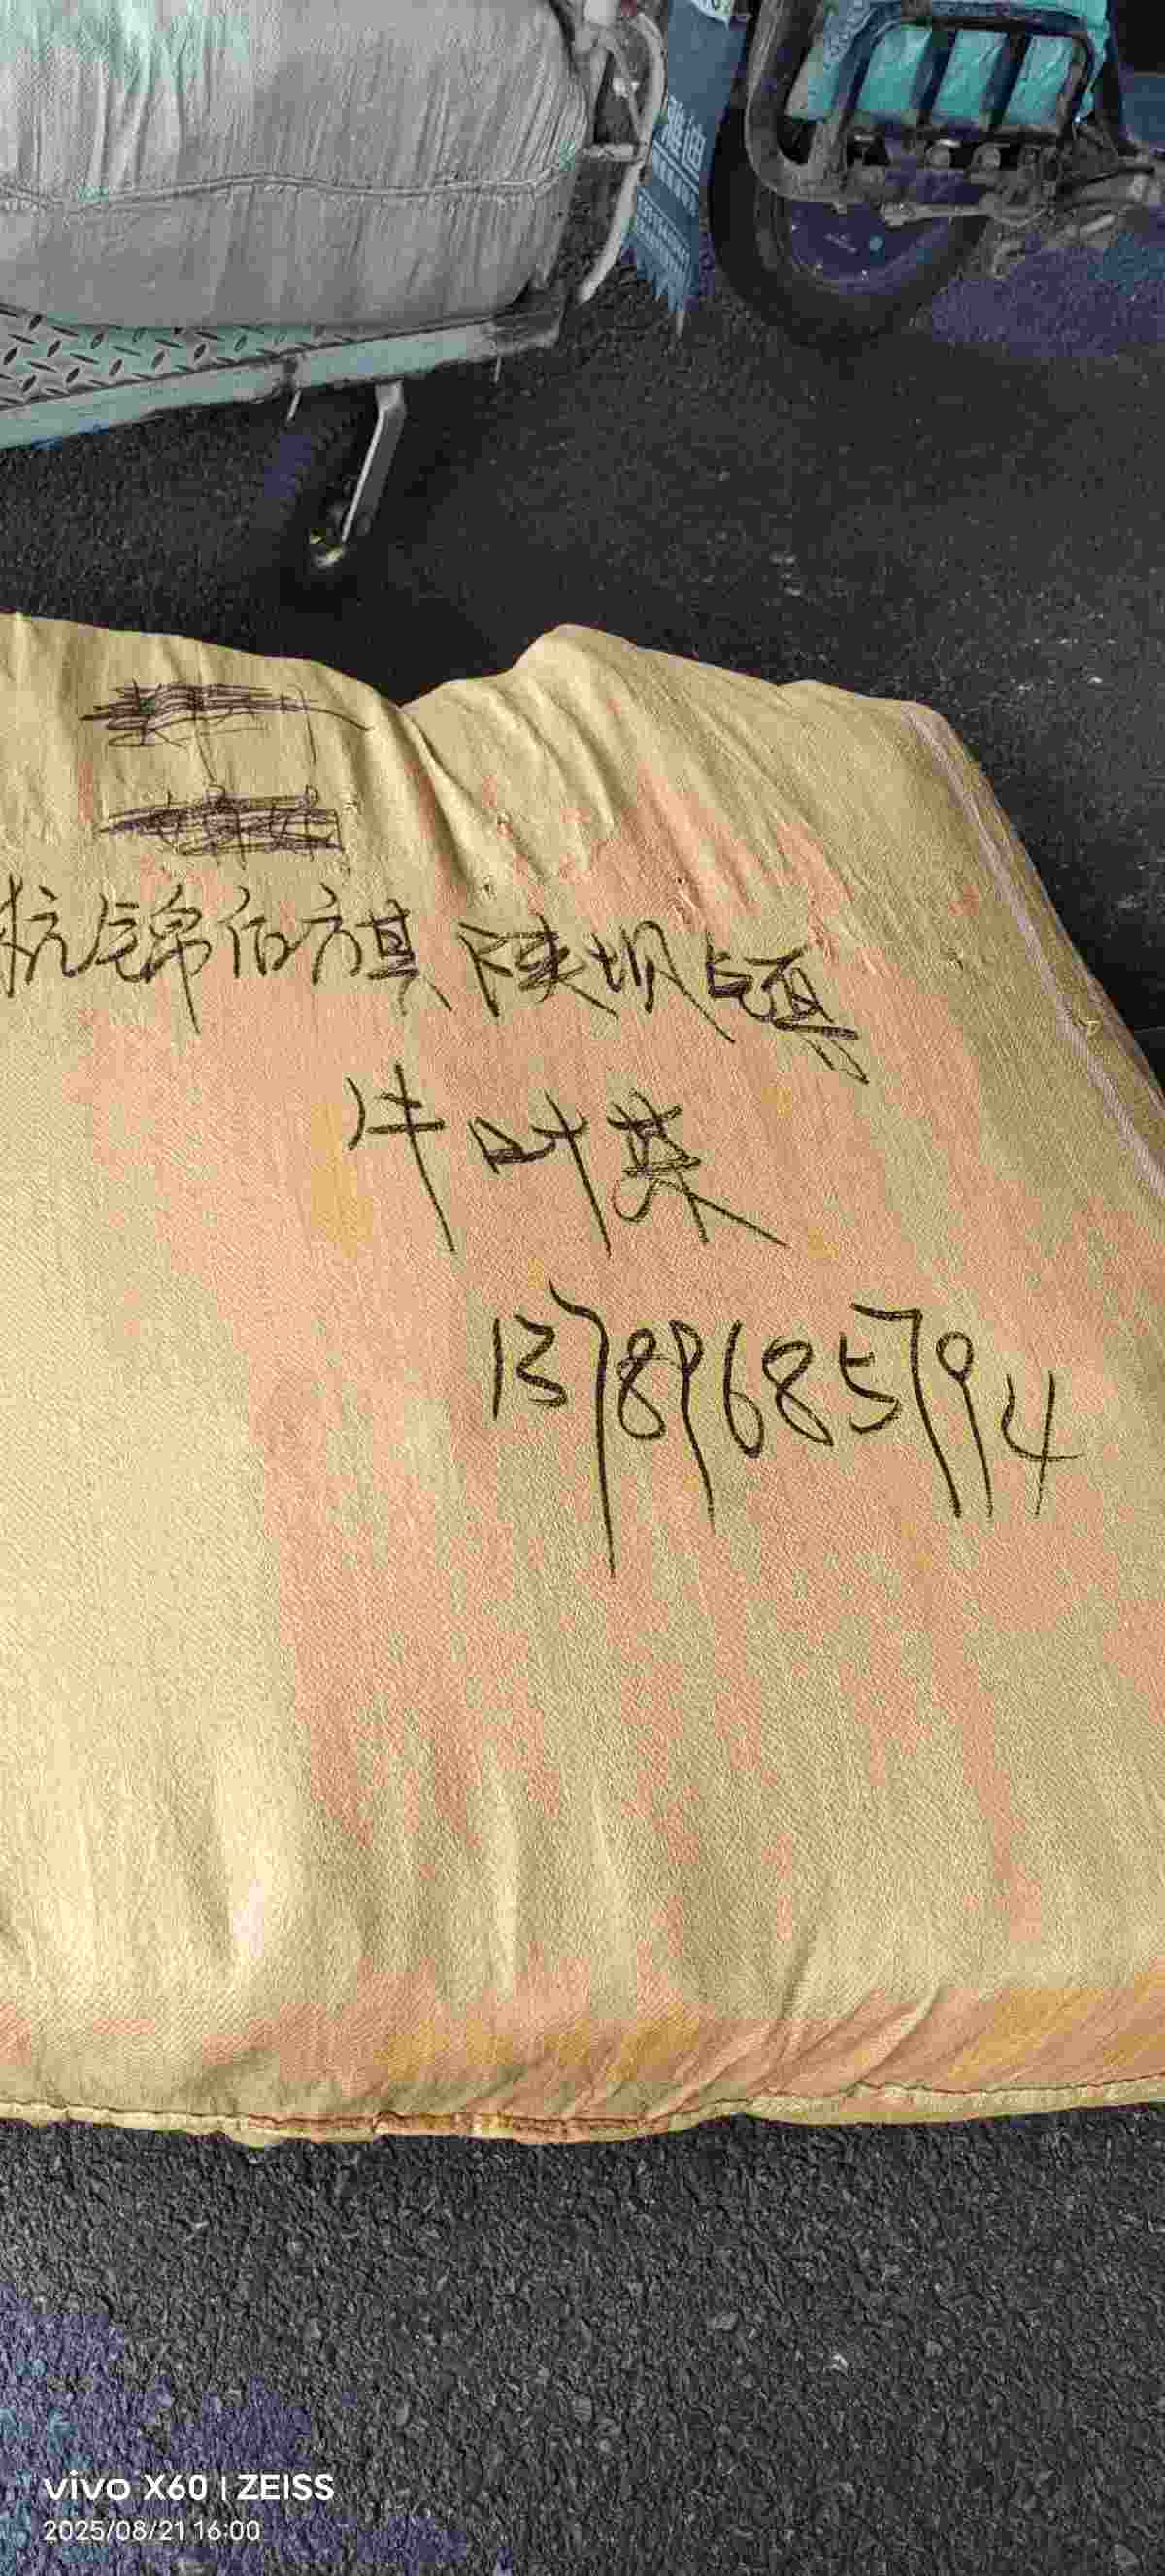 雅迪
杭锦伯方旗陕坝镇
牛叶菜
13789685794
vivo X60 | ZEISS
2025/08/21 16:00